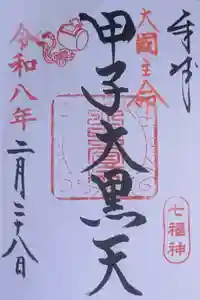 奉拝
七福神
大國主命
甲子大黒天
令和八年
二月二十八日